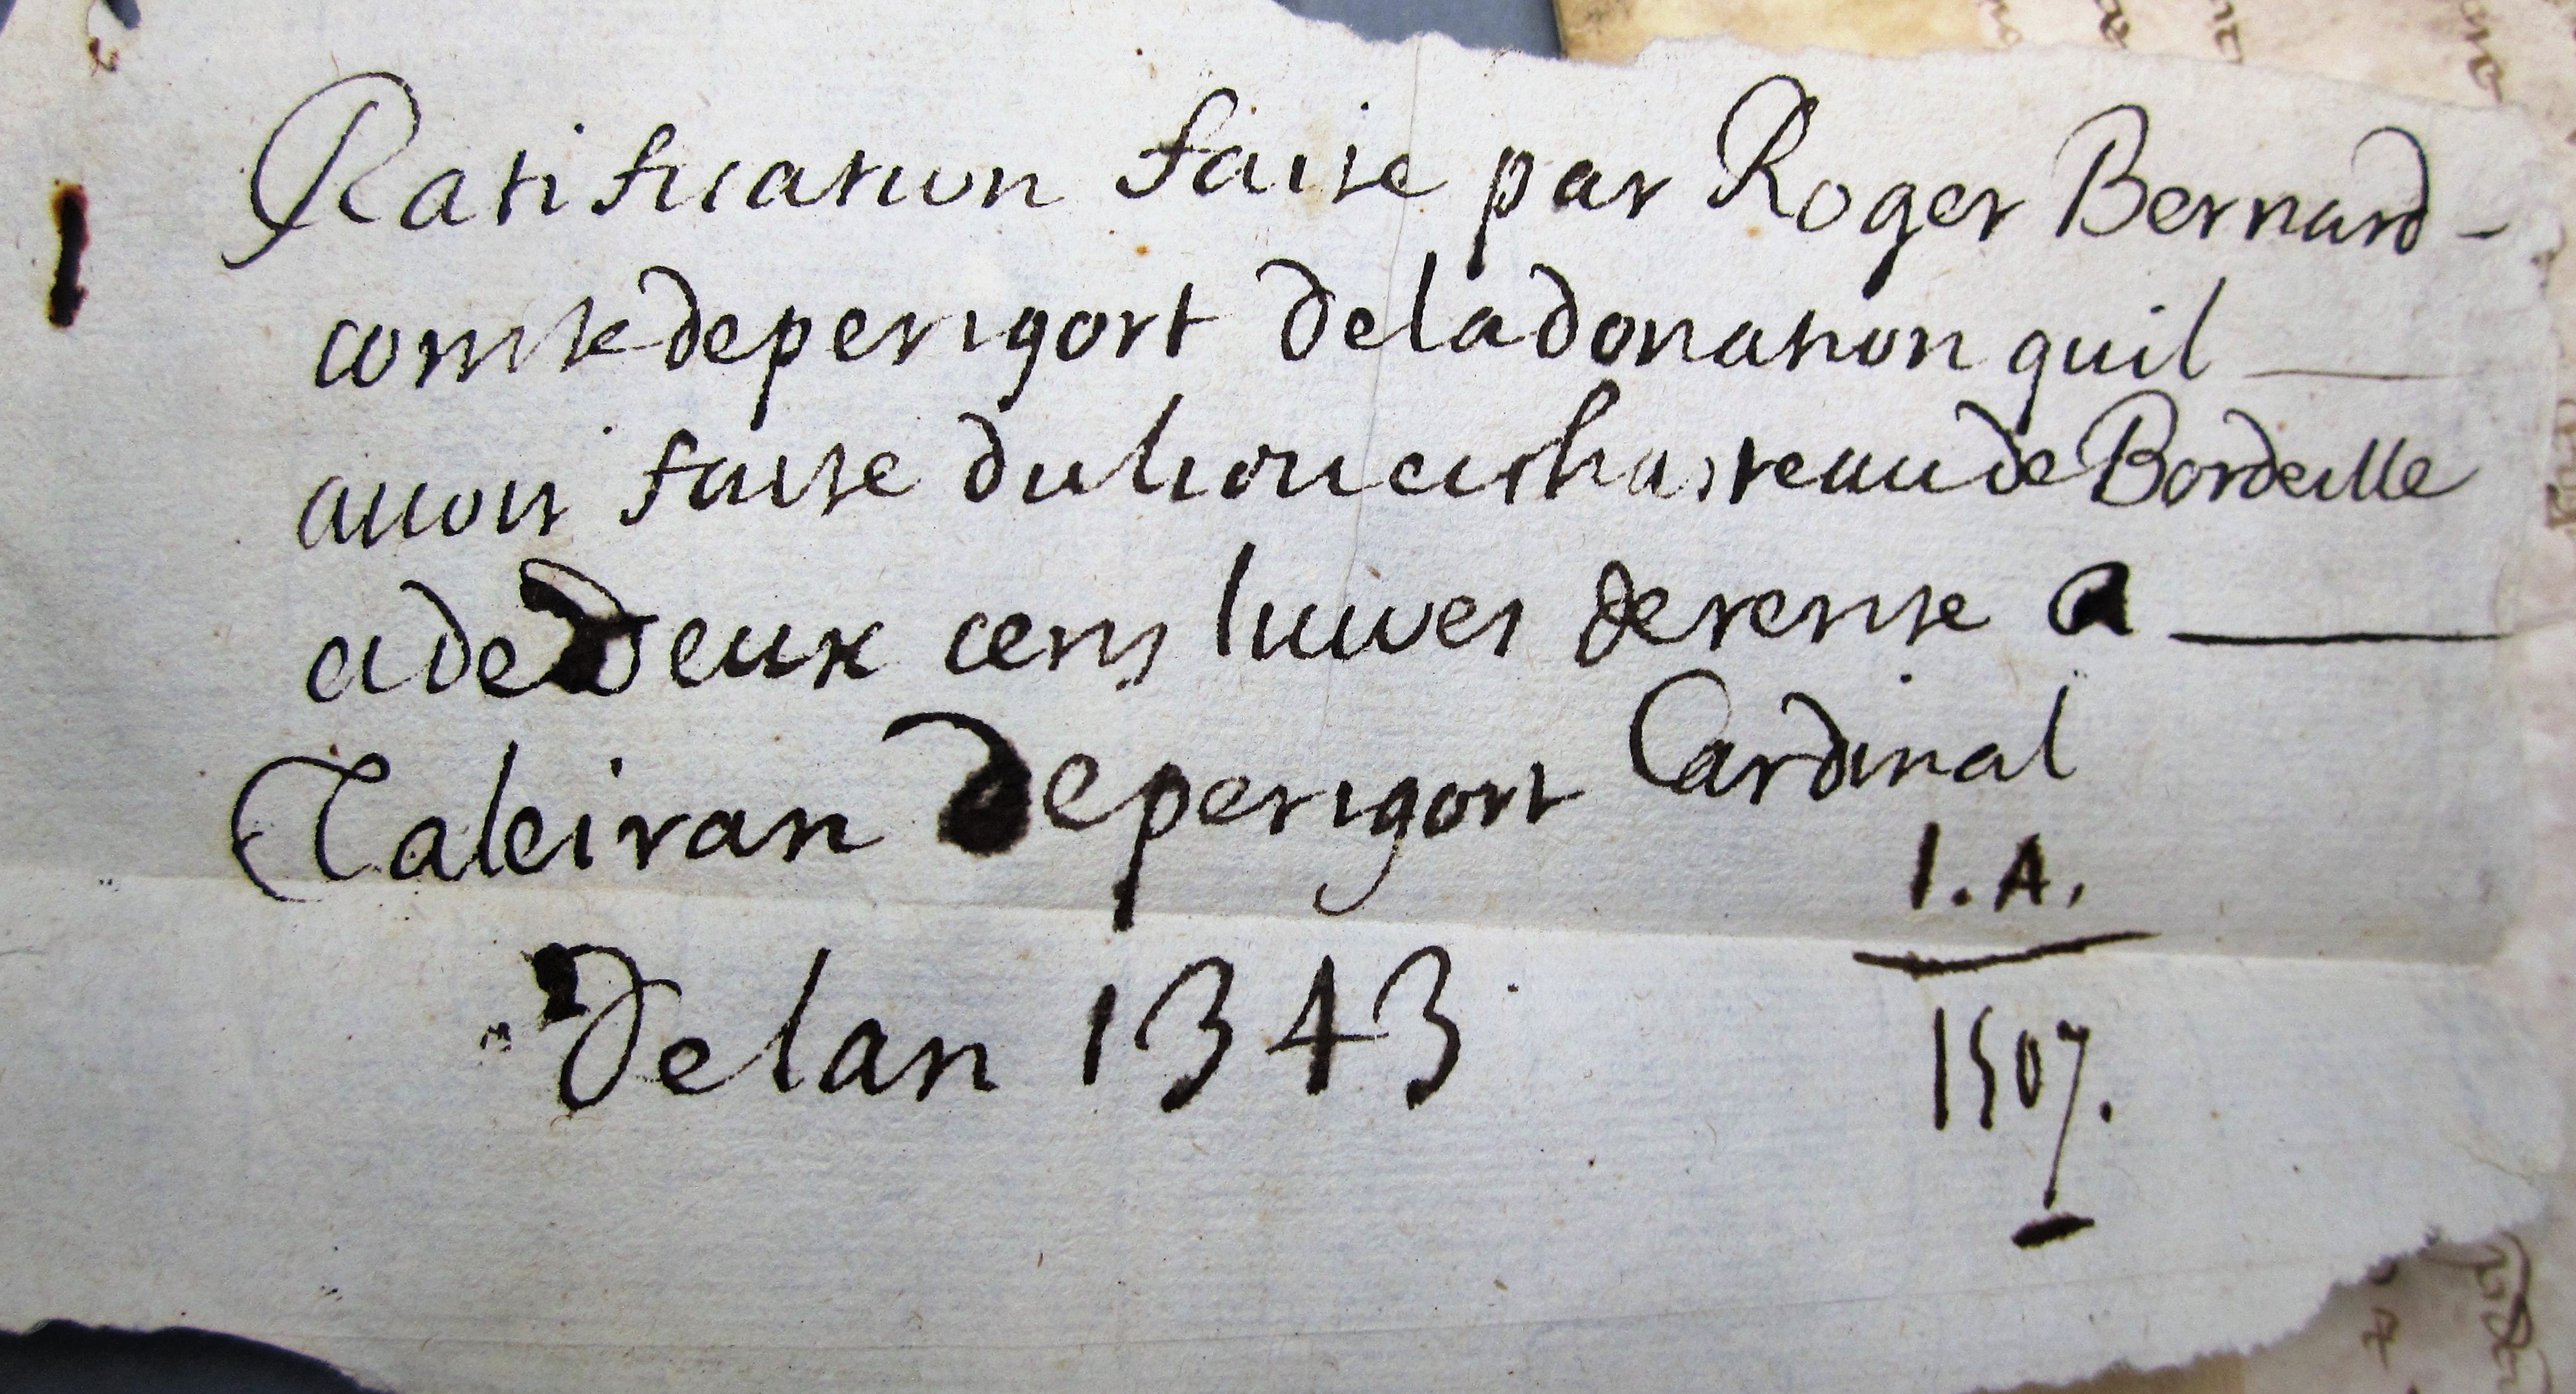 Ratification faite par Roger Bernard -
comte de perigort de la donation quil
auoit faite du lieu et chasteau de Bordeille
et de deux cens liures de rente a
Taleiran de perigort Cardinal
de lan 1343
I. A.
1507.